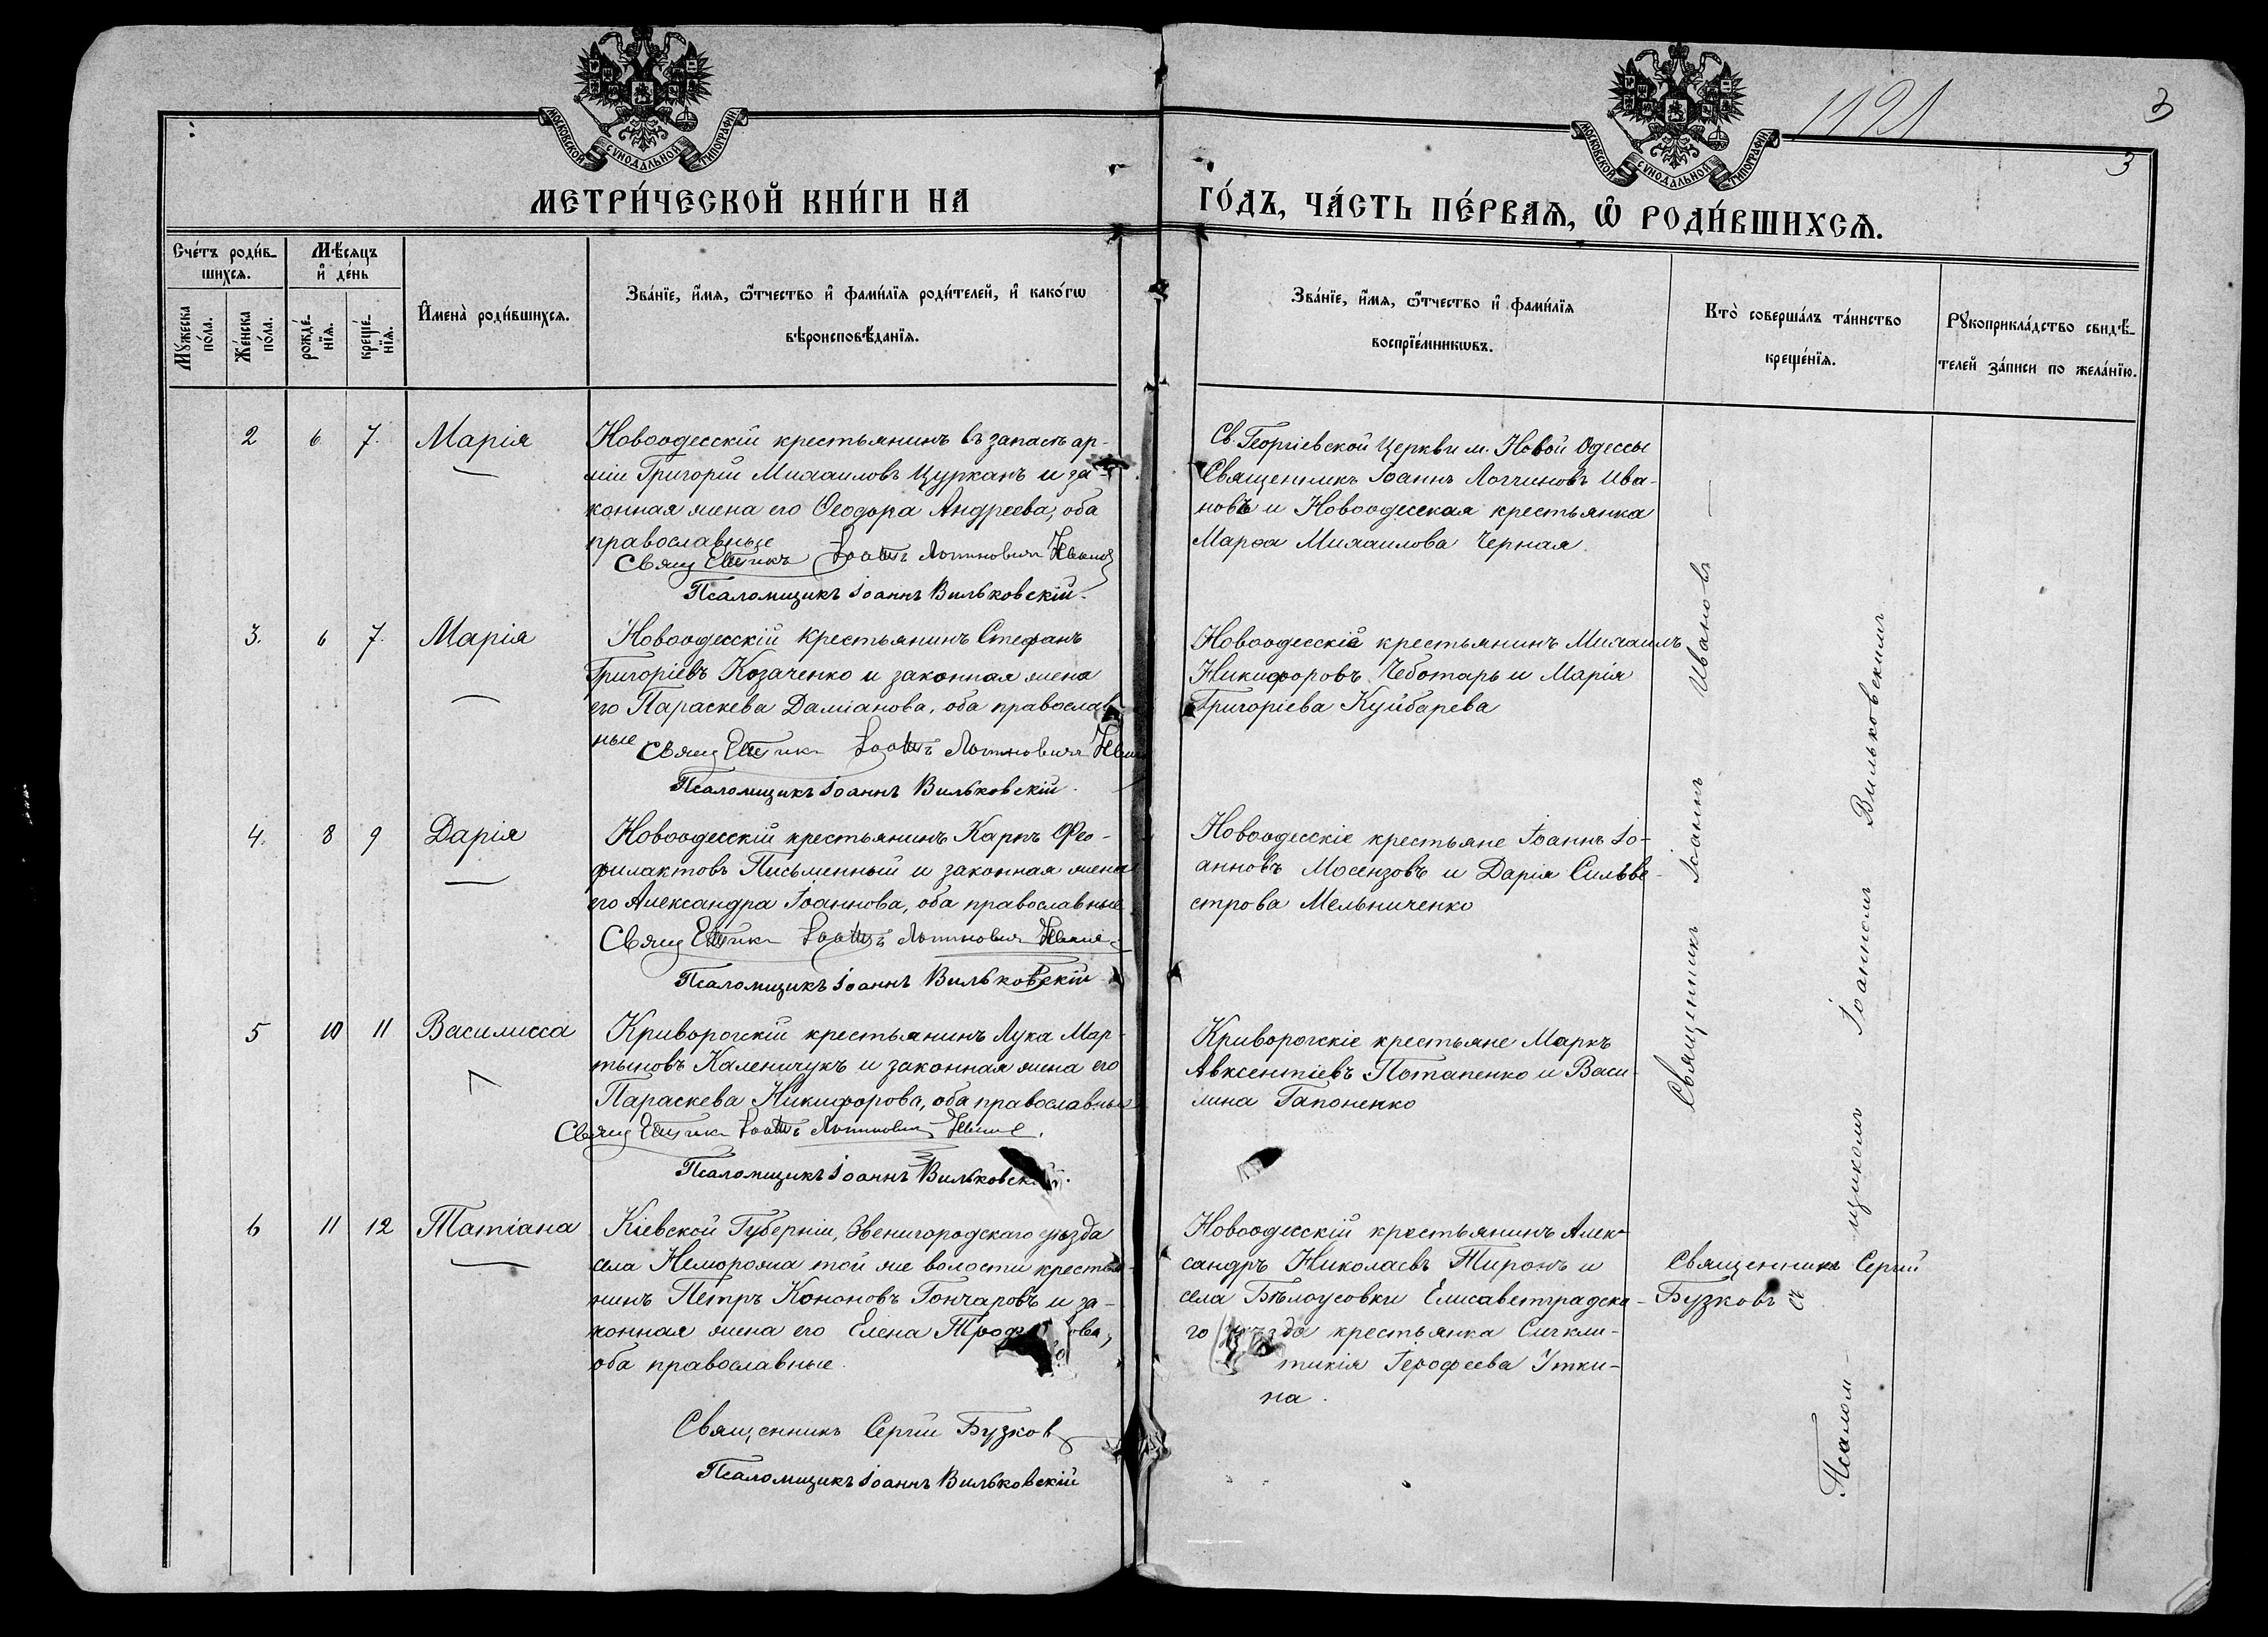 МОСКОВСКОЙ СѴНОДАЛЬНОЙ ТИПОГРАФІИ
МОСКОВСКОЙ СѴНОДАЛЬНОЙ ТИПОГРАФІИ
1121
3
3
МЕТРИ́ЧЕСКОЙ КНИ́ГИ НА
ГО́ДЪ, ЧА́СТЬ ПЕ́РВАѦ, Ѡ҆ РОДИ́ВШИХСѦ.
Сче́тъ роди́в-
шихсѧ.
Мѣ́сѧцъ
и҆ де́нь
Мꙋ́жеска
по́ла.
Же́нска
по́ла.
рожде́-
нїѧ.
креще́-
нїѧ.
И҆мена̀ роди́вшихсѧ.
Зва́нїе, и҆́мѧ, ѻ҆́тчество и҆ фами́лїѧ роди́телей, и҆ како́гѡ
вѣроисповѣ́данїѧ.
Зва́нїе, и҆́мѧ, ѻ҆́тчество и҆ фами́лїѧ
воспрїе́мникѡвъ.
Кто̀ соверша́лъ та́инство
креще́нїѧ.
Рꙋкоприкла́дство свидѣ́-
телей за́писи по жела́нїю.
2 6 7. Марія
Новоодесскій крестьянинъ въ запасѣ ар-
міи Григорій Михаиловъ Цурканъ и за-
конная жена его Ѳеодора Андреева, оба
православные
Священникъ Іоаннъ Логгиновичъ Ивановъ
Псаломщикъ Іоаннъ Вильковскій.
Св. Георгіевской Церкви м. Новой Одессы
Священникъ Іоаннъ Логгиновъ Ива-
новъ и Новоодесская крестьянка
Марѳа Михаилова Черная.
3. 6 7. Марія
Новоодесскій крестьянинъ Стефанъ
Григоріевъ Козаченко и законная жена
его Параскева Даміанова, оба православ
ные
Священникъ Іоаннъ Логгиновичъ
Псаломщикъ Іоаннъ Вильковскій.
Новоодесскіе крестьянинъ Михаилъ
Никифоровъ Чеботарь и Марія
Григоріева Куйбарева
4. 8 9 Дарія
Новоодесскій крестьянинъ Карпъ Фео-
филактовъ Письменный и законная жена
его Александра Іоаннова, оба православные
Священникъ Іоаннъ Логгиновичъ
Псаломщикъ Іоаннъ Вильковскій
Новоодесскіе крестьяне Іоаннъ Іо-
анновъ Мосензовъ и Дарія Сильве-
строва Мельниченко
5 10 11 Василисса
Криворогскій крестьянинъ Лука Мар-
тыновъ Каленичукъ и законная жена его
Параскева Никифорова, оба православные
Священникъ Іоаннъ Логгиновичъ
Псаломщикъ Іоаннъ Вильковск
Криворогскіе крестьяне Маркъ
Авксентіевъ Потапенко и Васи-
лина Гапоненко
6 11 12 Татіана
Кіевской Губерніи, Звенигородскаго уѣзда
села Неморожа той же волости крестья-
нинъ Петръ Кононовъ Гончаровъ и за-
конная жена его Елена Троф ова,
оба православные.
Священникъ Сергій Бузковъ
Псаломщикъ Іоаннъ Вильковскій
Новоодесскій крестьянинъ Алек-
сандръ Николаевъ Тиронъ и
села Бѣлоусовки Елисаветградска-
го уѣзда крестьянка
тикія Іерофеева Утки-
на.
Священникъ Іоаннъ Ивановъ —
Священникъ Сергій
Бузковъ съ
Псалом-
щикомъ Іоанномъ Вильковскимъ